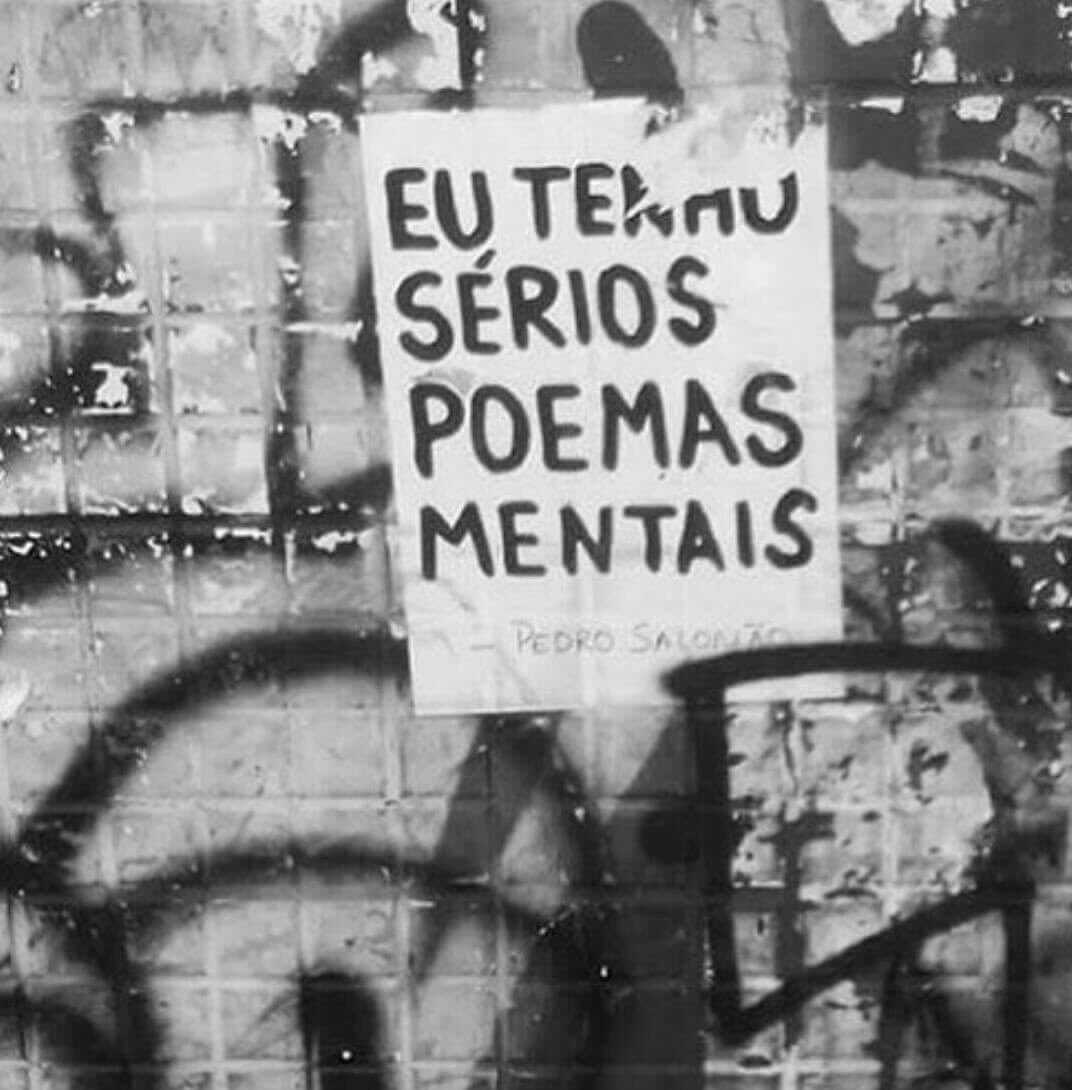 EU TENHO
SÉRIOS
POEMAS
MENTAIS
- PEDRO SALOMÃO